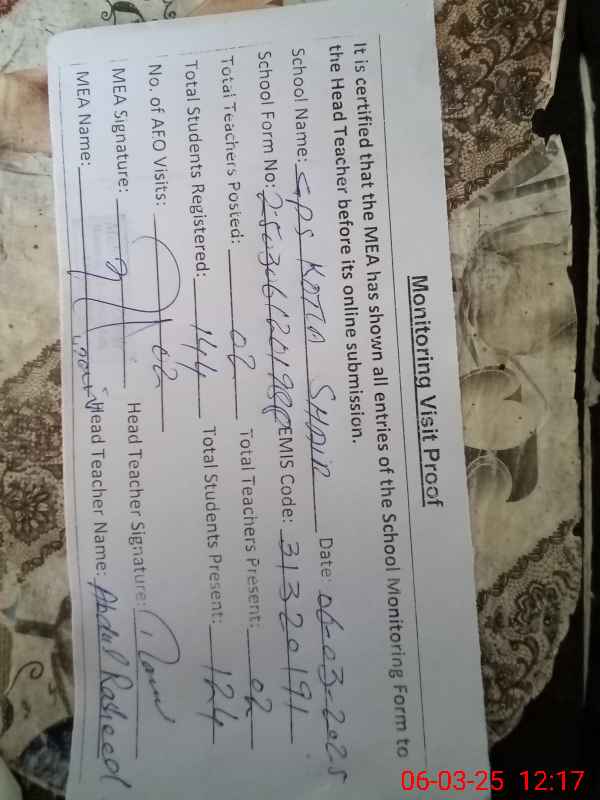 Monitoring Visit Proof
It is certified that the MEA has shown all entries of the School Monitoring Form to
the Head Teacher before its online submission.
School Name: GPS KOTLA SHAIR Date: 06-03-2025
School Form No: EMIS Code: 31320191
Total Teachers Posted: 02 Total Teachers Present: 02
Total Students Registered: 144 Total Students Present: 124
No. of AEO Visits: 02
MEA Signature: Head Teacher Signature:
MEA Name: Head Teacher Name: Abdul Rasheed
06-03-25 12:17